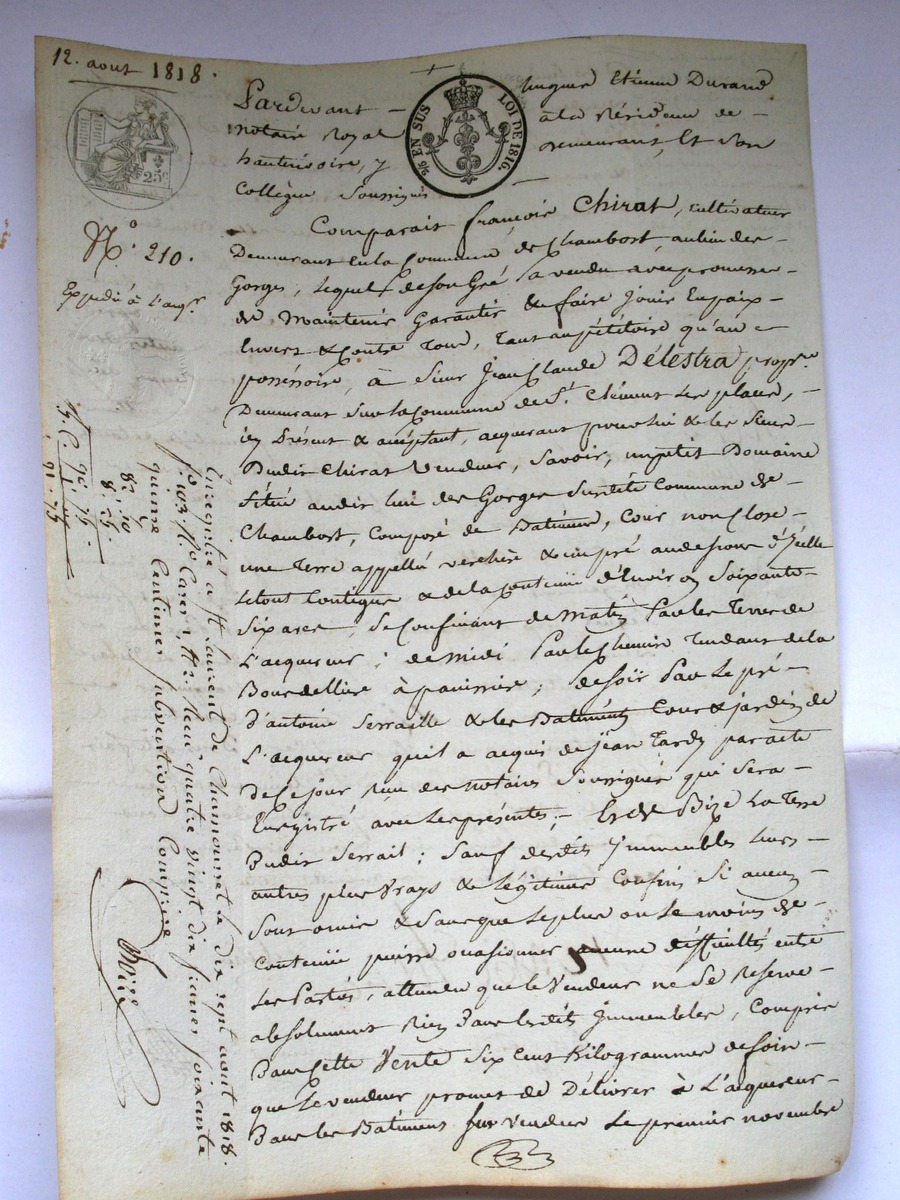 12. aout 1818.
25c
% EN SUS LOI DE 1816.
Pardevant hugues Etienne Durand
notaire Royal a la Résidence de
hauterivoire, y demeurant, Et son
Collègue Soussignés
Comparait françois Chirat, cultivateur
Demeurant En la Commune de Chambost, au lieu des
Gorges, lequel de son Gré a vendu avec promesse
de Maintenir Garantir & faire jouir En paix
Envers & Contre Tous, tant au pétitoire qu'au
possessoire, à Sieur Jean Claude Délestra propre.
Demeurant sur la Commune de St. Clément les places,
icy Présent & acceptant, acquerant pour lui & les siens
Dudit Chirat Vendeur, Savoir, un petit Domaine
Situé audit lieu des Gorges Susdite Commune de
Chambost, Composé de Batiment, Cour non Close
une Terre appellé verchère & un pré au dessous d'Icelle
le tout Contigue & de la Contenüe d'Environ Soixante
Six ares, Se Confinant de Matin Par les Terres de
L'acquereur; de Midi Par le Chemin Tendant de la
Bourdellière à panissière; de soir Par le pré
d'antoine Serraille & les Batiments Cour & jardin de
L'acquereur qu'il a acquis de Jean Tardy par acte
de Ce jour Reçu des notaires Soussignés qui Sera
Enregistré avec les présentes; Et de Bize La Terre
Dudit Serrail; Sauf desdits Immeubles leurs
autres plus Vrays & Légitimes Confins Si aucuns
Sont omis & Sans que le plus ou le moins de
Contenüe puisse occasionner aucune difficultés entre
Les Parties, attendu que le Vendeur ne Se Reserve
absolument Rien Dans lesdits Immeubles, Compris
Dans cette Vente Six Cent Kilogrammes de foin
que le vendeur promet de Délivrer à L'acquereur
Dans les Batiment sus vendus Le premier novembre
No. 210.
Expédié à l'aqr.
Enregistré à St. Laurent de Chamousset le dix sept aout 1818.
fo. 103 Ro. Cases Reçu quatre vingt dix francs soixante
quinze Centimes subvention Comprise
82. 50
8. 25
90. 75
1.
91. 75